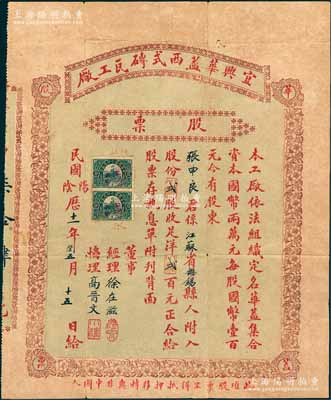 宜興華蓋西式磚瓦工廠
股票
本工廠依法組織定名華蓋集合
資本國幣兩萬元每股國幣壹百
元今有股東
張中良君係江蘇省無錫縣人附入
股份貳股收足洋貳百元正合給
股票存執息單附列背面
董事
經理 徐在茲
協理 高晉文
民國陰歷十一年五月十五日給